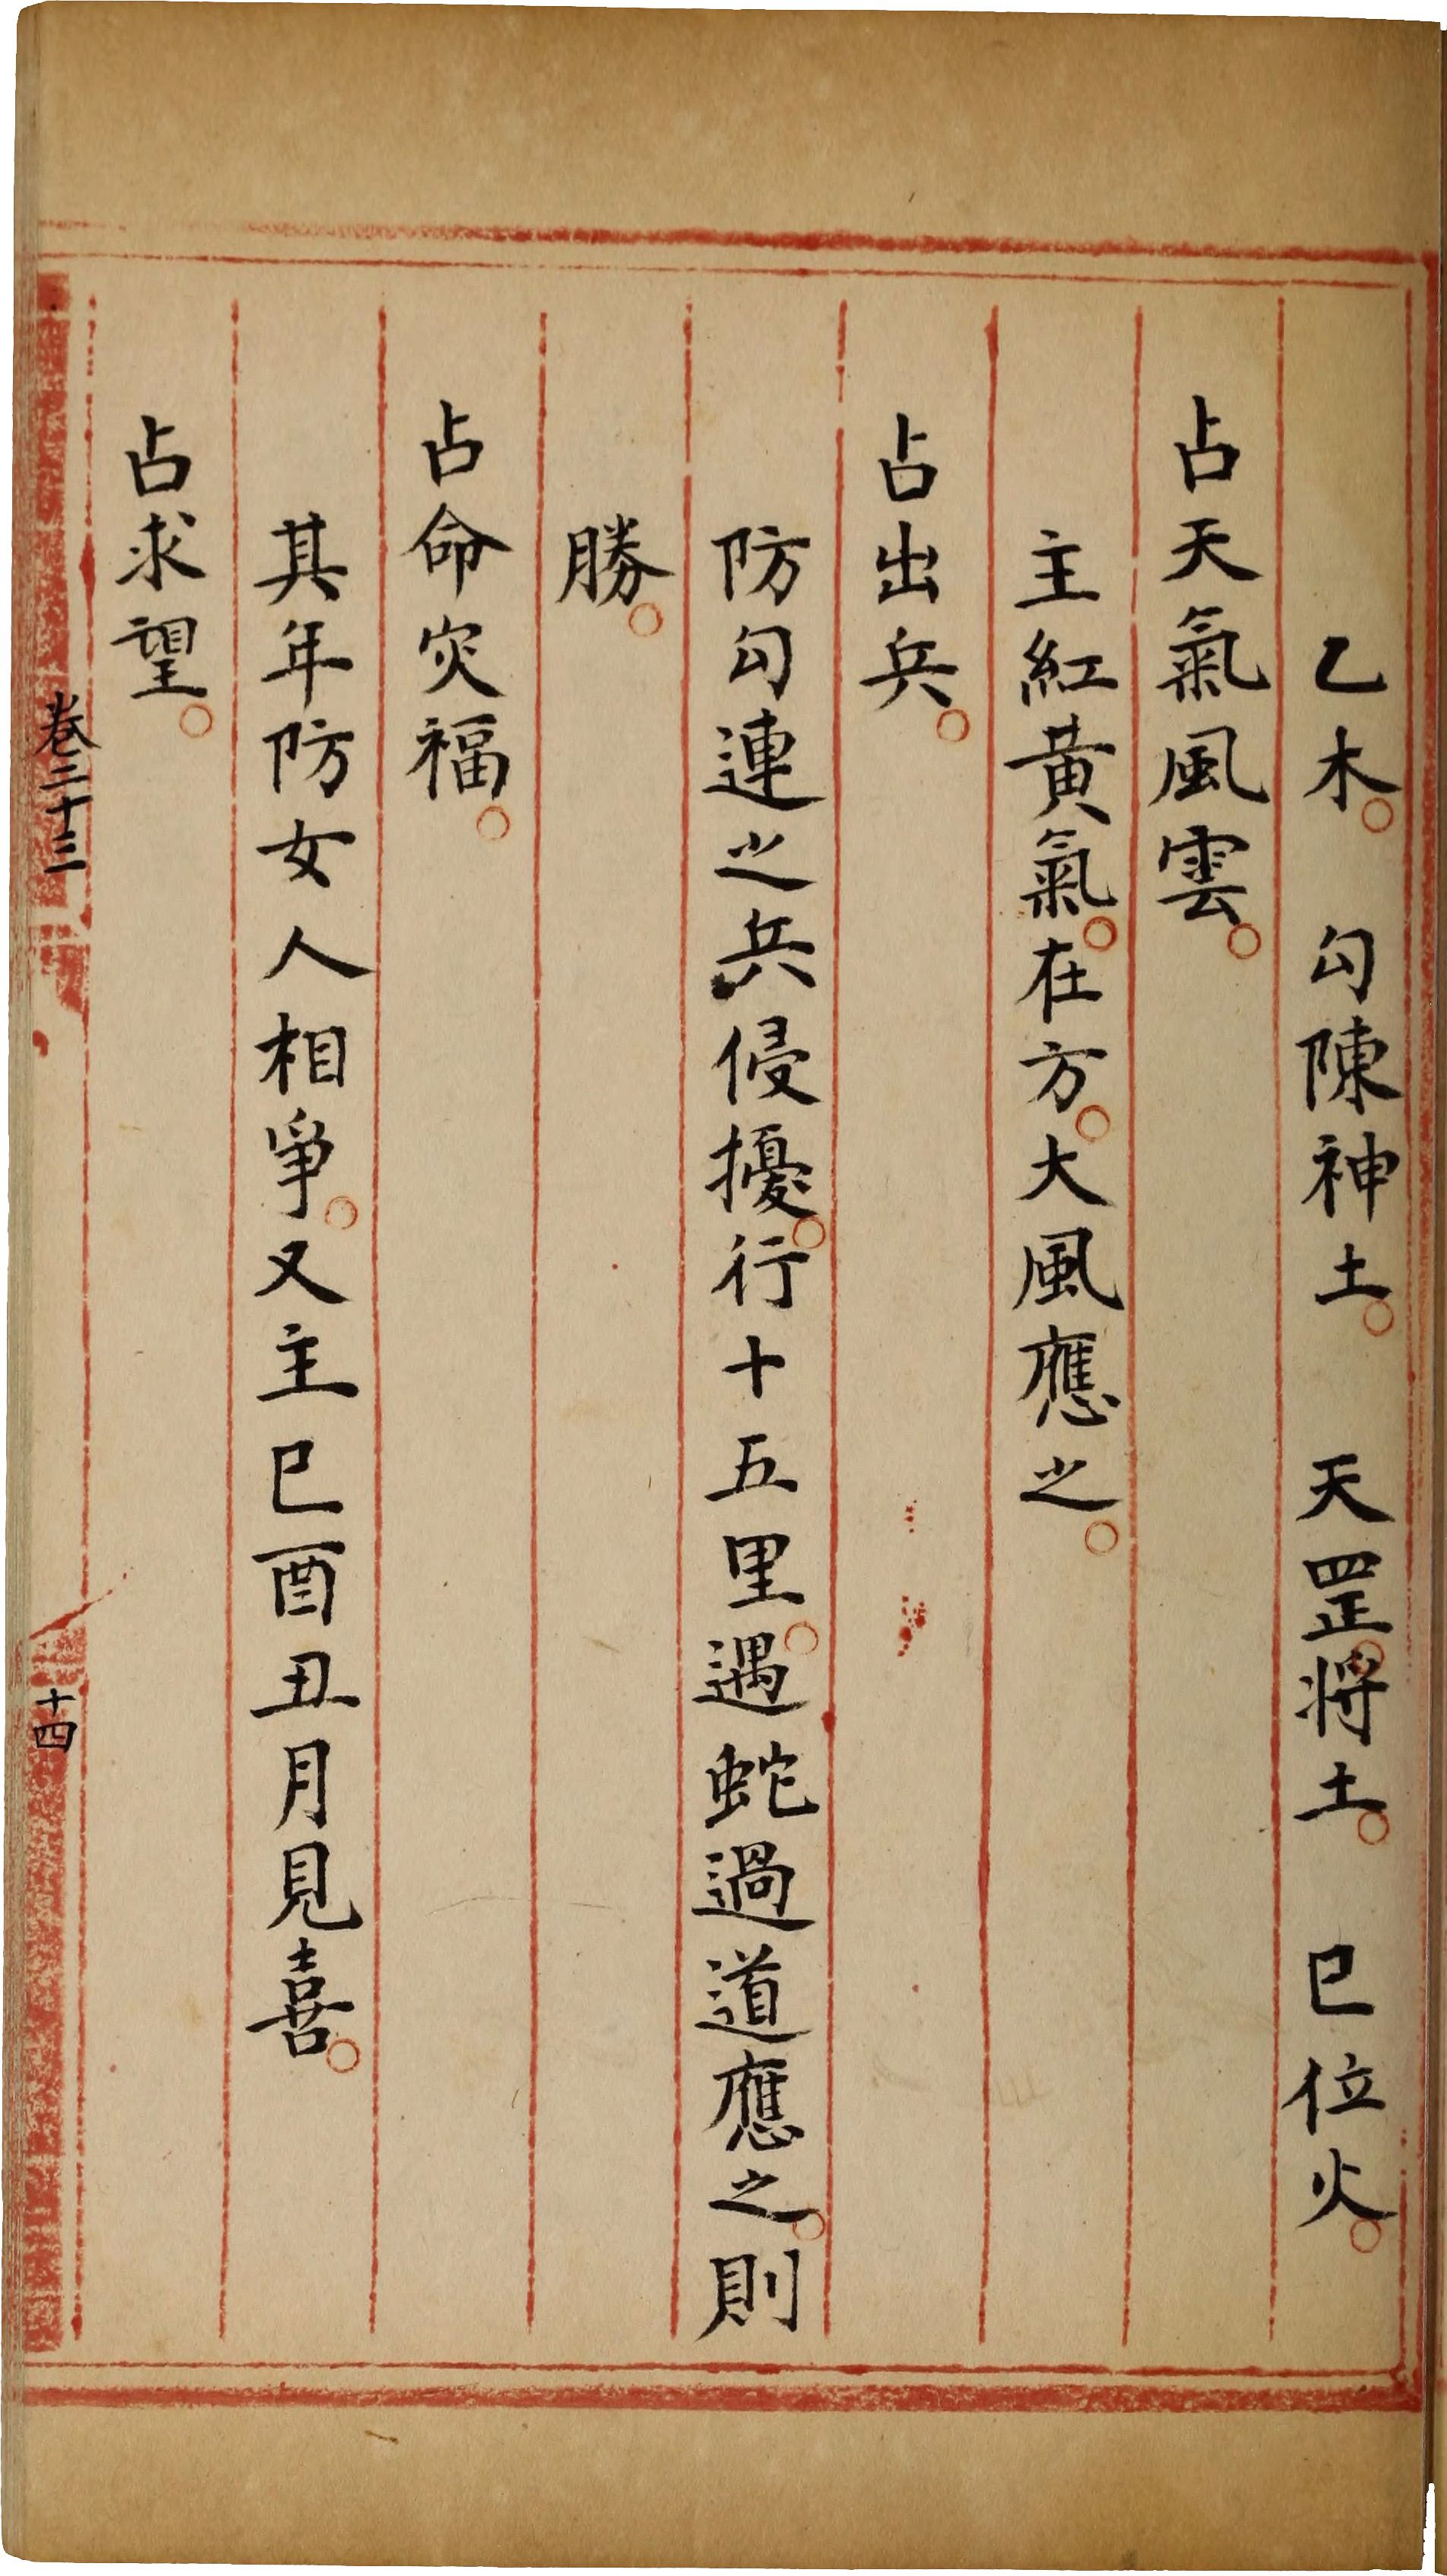 乙木。　勾陳神土。　天罡。將土。　巳位火。
占天氣風雲。
主紅黃氣。在方。大風應之。
占出兵。
防勾連之兵侵擾。行十五里。遇蛇過道應之。則
勝。
占命灾福。
其年防女人相爭。又主巳酉丑月見喜。
占求望。
卷三十三
十四